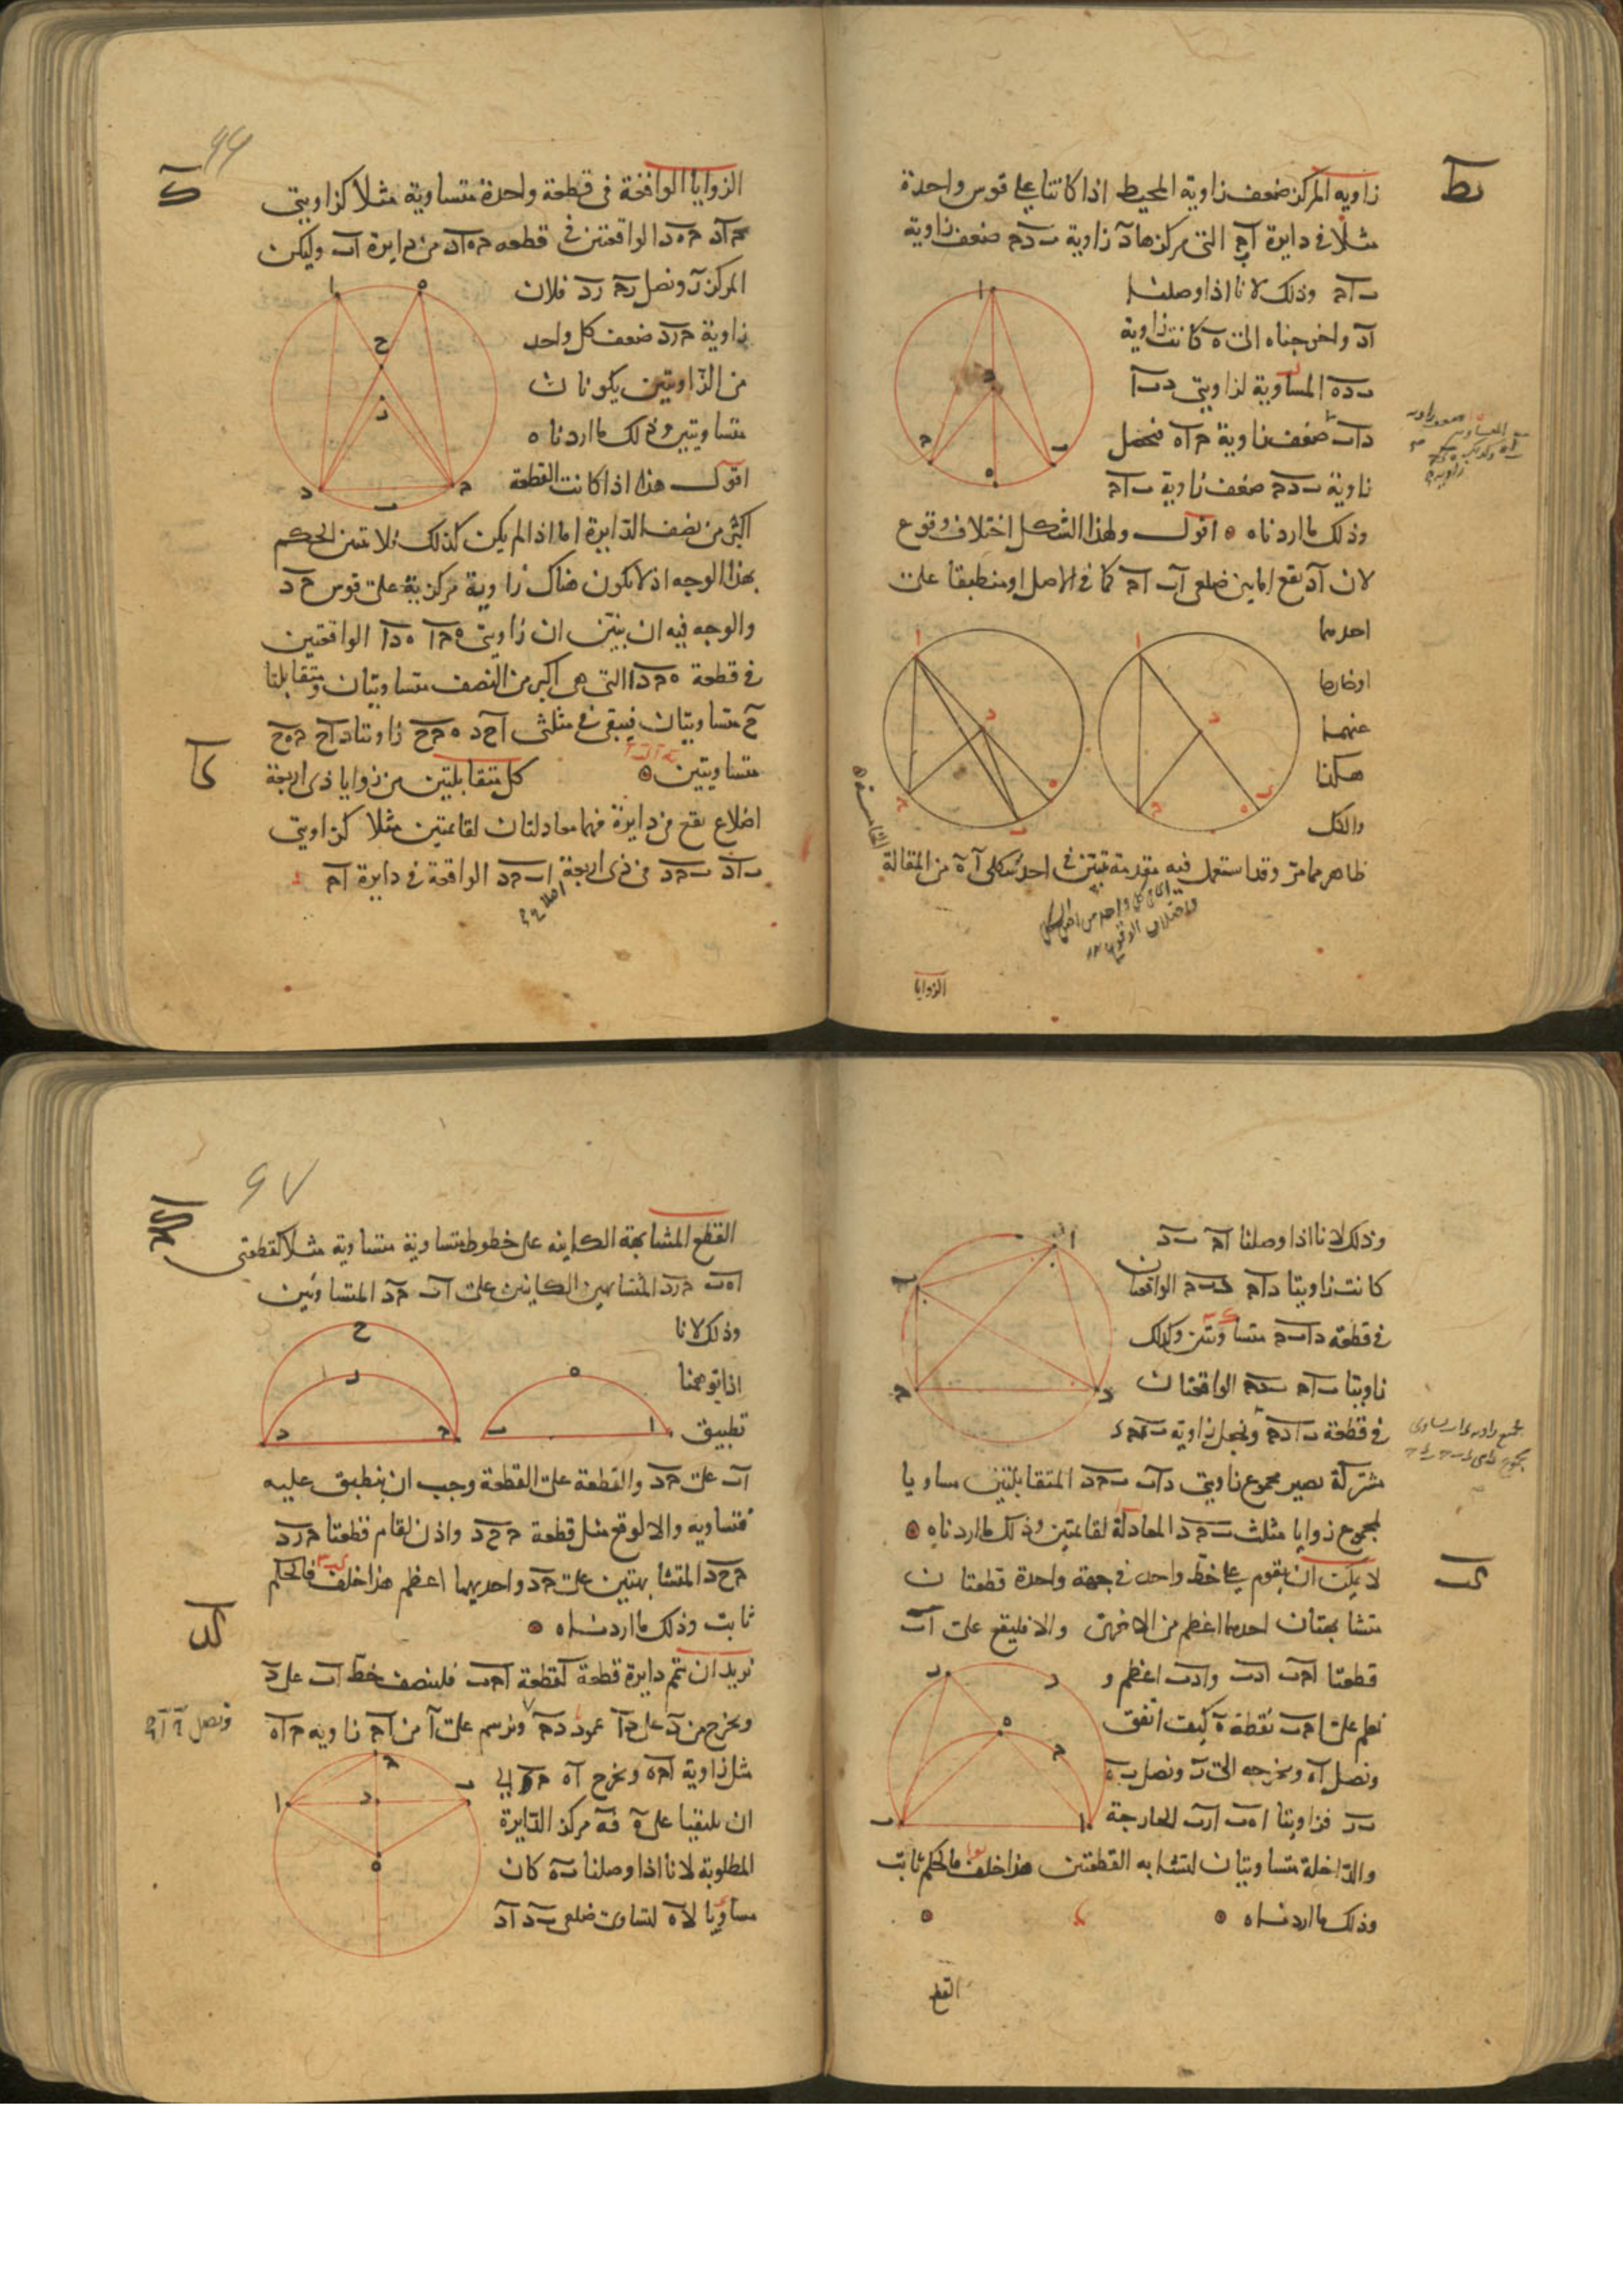 يط
زاوية المركز ضعف زاوية المحيط اذا كانتا على قوس واحدة
مثلا في دايرة آب‍ج التي مركزها د زاوية ب‍دج ضعف زاوية
ب‍اج وذلك لانا اذا وصلنا
اد واخرجناه الى ه كانت زاوية
ب‍ده المساوية لزاويتي دب‍ا
داب ضعف زاوية ج‍اه فتحصل
زاوية ب‍دج ضعف زاوية ب‍اج
وذلك ما اردناه اقول ولهذا الشكل اختلاف وقوع
لان اد يقع اما بين ضلعي اب اج كما في الاصل او منطبقا على
احدهما
او خارجا
عنهما
هكذا
والكل
ظاهر مما مر وقد استعمل فيه مقدمة تبين في احد شكلي آ ه من المقالة
الخامسة
الزوايا
ك
الزوايا الواقعة في قطعة واحدة متساوية مثلا كزاويتي
ج‍اد ج‍ه‍د الواقعتين في قطعه ج‍ه‍اد من دايرة اب وليكن
المركز ر ونصل رج رد فلان
زاوية ج‍رد ضعف كل واحد
من الزاويتين يكونان
متساويتين وذلك ما اردناه
اقول هذا اذا كانت القطعة
اكثر من نصف الدايرة اما اذا لم يكن كذلك فلا يتبين الحكم
بهذا الوجه اذ لا يكون هناك زاوية مركزية على قوس ج‍د
والوجه فيه ان نبين ان زاويتي ه‍ج‍ا ه‍دا الواقعتين
في قطعة ه‍ج‍دا التي هي اكبر من النصف متساويتان ومتقابلتا
ح متساويتان فيبقى في مثلثي اح‍د ه‍ج‍ح زاويتا داح ج‍ه‍ح
متساويتين
كا
كل متقابلتين من زوايا ذي اربعة
اضلاع يقع في دايرة فهما معادلتان لقائمتين مثلا كزاويتي
ب‍اد ب‍ج‍د من ذي اربعة اضلاع اب‍ج‍د الواقعة في دايرة اج
وذلك لانا اذا وصلنا اج ب‍د
كانت زاويتا داج دب‍ج الواقعتان
في قطعة داب‍ج متساويتين وكذلك
زاويتا ب‍اج ب‍دج الواقعتان
في قطعة ب‍ادج ونجعل زاوية ب‍ج‍د
مشتركة يصير مجموع زاويتي داب ب‍ج‍د المتقابلتين مساويا
لمجموع زوايا مثلث ب‍ج‍د المعادلة لقائمتين وذلك ما اردناه
كب
لا يمكن ان يقوم على خط واحد في جهة واحدة قطعتان
متشابهتان احدهما اعظم من الاخرى والا فليقع على اب
قطعتا اج‍ب ادب وادب اعظم و
نعلم على اج‍ب نقطة ه كيف اتفق
ونصل اه ونخرجه الى ر ونصل ب‍ه
ب‍ر فزاويتا اه‍ب ارب الخارجة
والداخلة متساويتان لتشابه القطعتين هذا خلف فالحكم ثابت
وذلك ما اردناه
القطع
القطع المتشابهة الكاينة على خطوط متساوية متساوية مثلا كقطعتي
اه‍ب ج‍رد المتشابهتين الكاينتين على اب ج‍د المتساويين
وذلك لانا
اذا توهمنا
تطبيق
اب على ج‍د والقطعة على القطعة وجب ان ينطبق عليه
فتساويه والا لوقع مثل قطعة ج‍ح‍د واذن لقام قطعتا ج‍رد
ج‍ح‍د المتشابهتين على ج‍د واحديهما اعظم هذا خلف فالحكم
ثابت وذلك ما اردناه
كد
نريد ان نتم دايرة قطعة كقطعة اج‍ب فلينصف خط اب على د
ونخرج من د على ا‍ب عمود دج ونرسم على ا من اج زاوية ج‍اه
مثل زاوية اج‍ه ونخرج اه ج‍د الى
ان يلتقيا على ه فه مركز الدايرة
المطلوبة لانا اذا وصلنا ب‍ه كان
مساويا لاه لتساوي ضلعي ب‍د اد